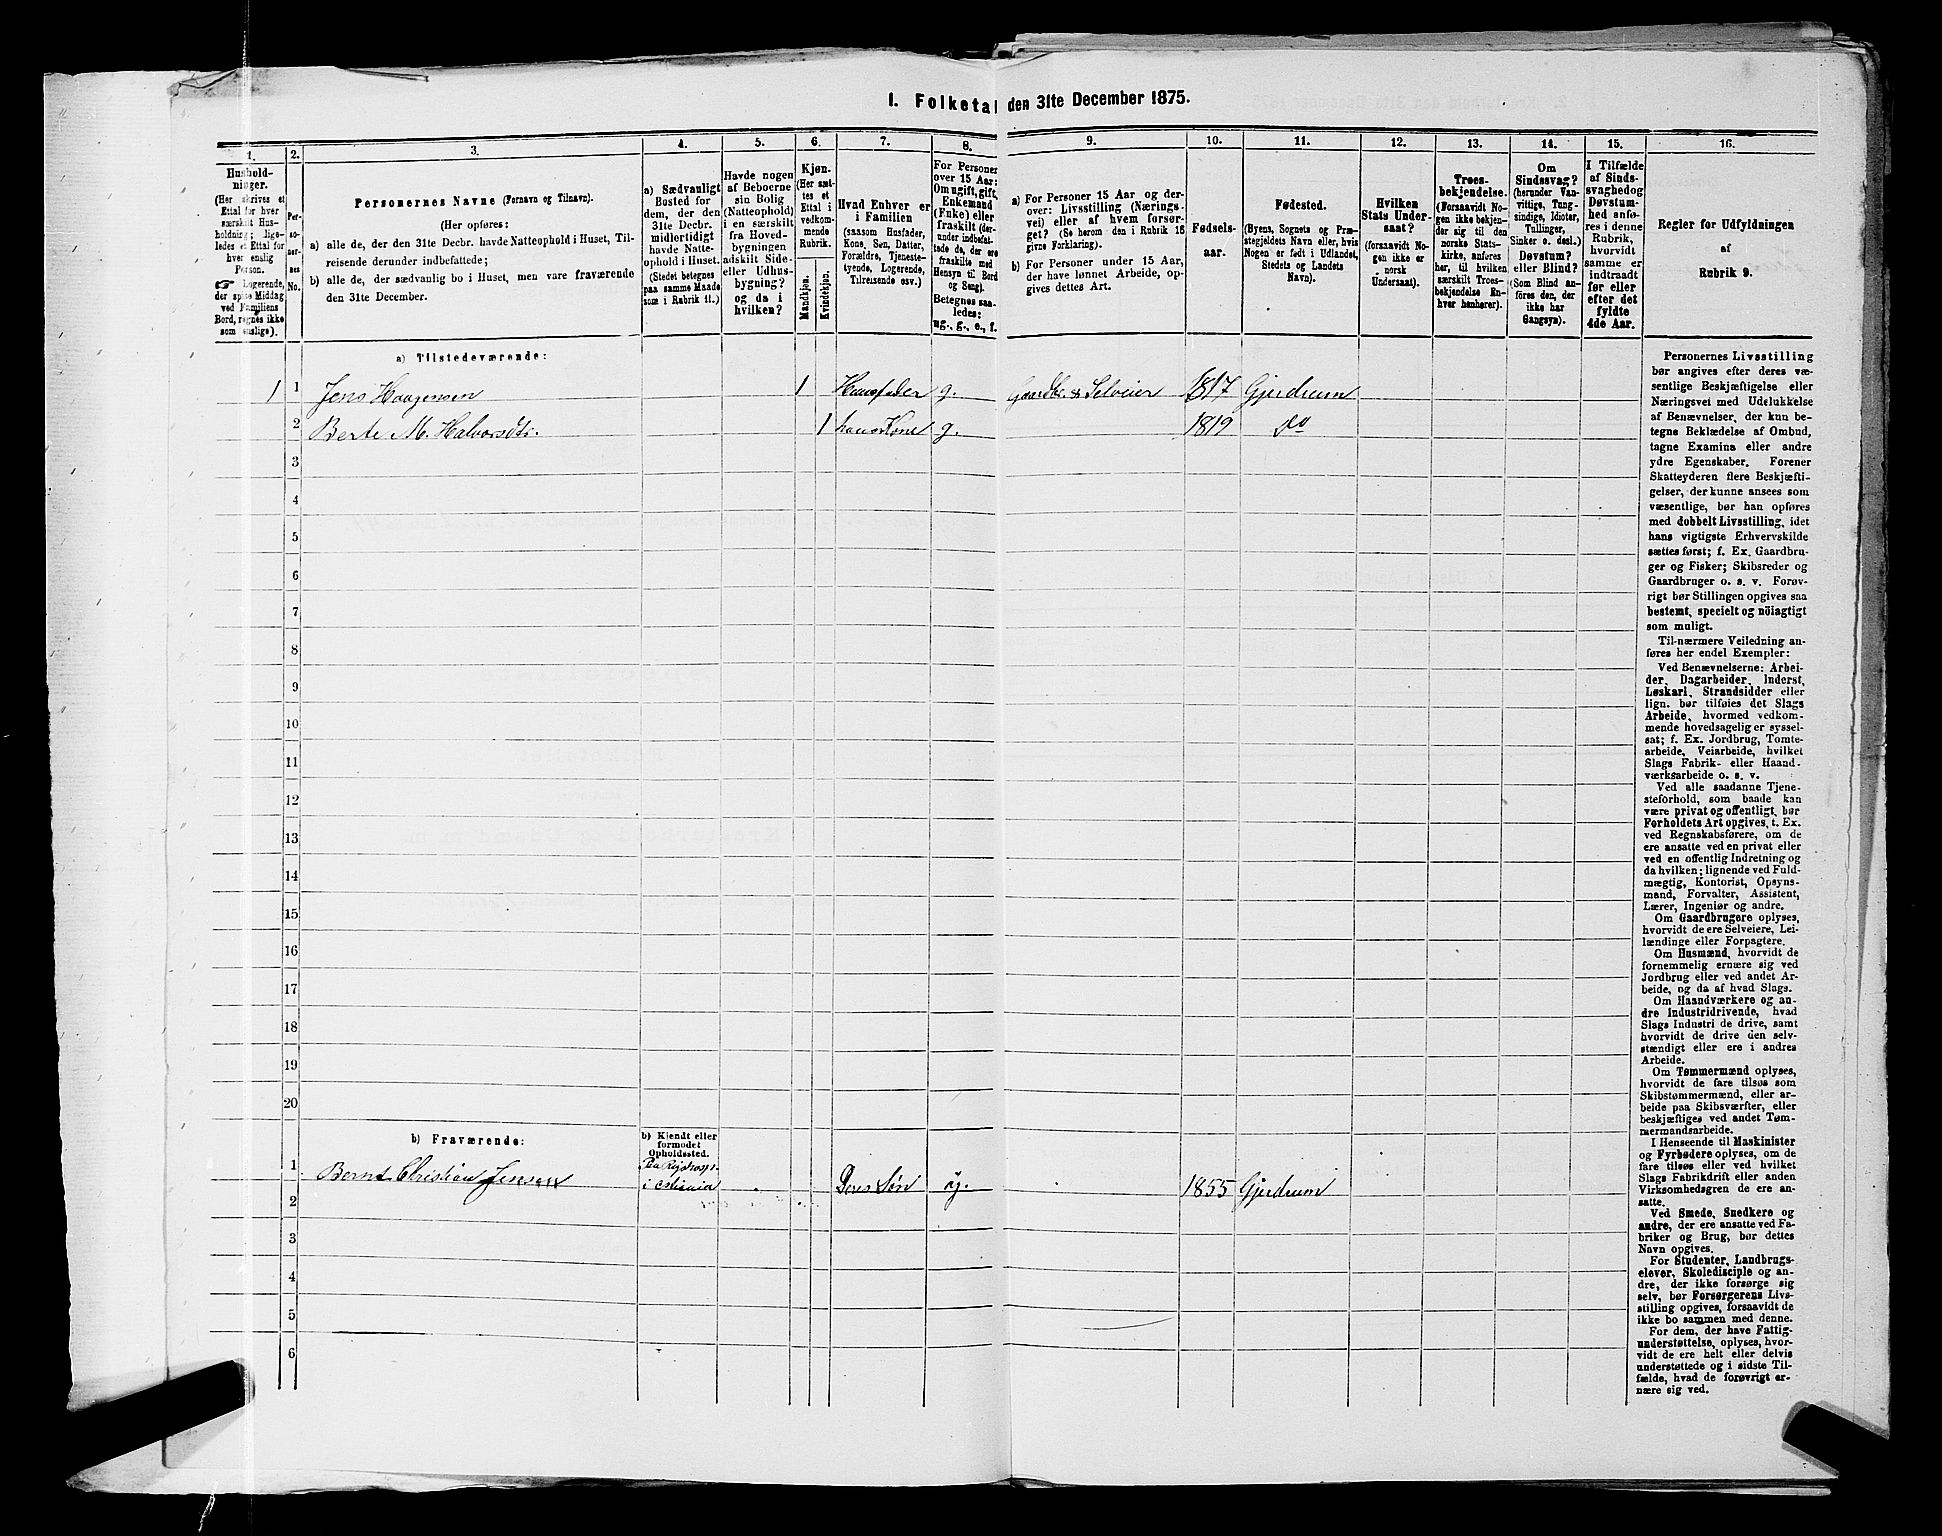 1. Folketal den 31te December 1875.
1.
2.
3.
4.
5.
6.
7.
8.
9.
10.
11.
12.
13.
14.
15.
16.
Hushold-
ninger.
(Her skrives et
Ettal for hver
særskilt Hus-
holdning; lige-
ledes et Ettal for
hver enslig
Person.
☞ Logerende,
der spise Middag
ved Familiens
Bord, regnes ikke
som enslige).
Per-
so-
ner-
nes
No.
Personernes Navne (Fornavn og Tilnavn).
(Her opføres:
a) alle de, der den 31te Decbr. havde Natteophold i Huset, Til-
reisende derunder indbefattede;
b) alle de, der sædvanlig bo i Huset, men vare fraværende
den 31te December.
a) Sædvanligt
Bosted for
dem, der den
31te Decbr.
midlertidigt
havde Natte-
ophold i Huset.
(Stedet betegnes
paa samme Maade
som i Rubrik 11.)
Havde nogen
af Beboerne
sin Bolig
(Natteophold)
i en særskilt
fra Hoved-
bygningen
adskilt Side-
eller Udhus-
bygning?
og da i
hvilken?
Kjøn.
(Her sæt-
tes et
Ettal i
vedkom-
mende
Rubrik.
Mandkjøn.
Kvindekjøn.
Hvad Enhver er
i Familien
(saasom Husfader,
Kone, Søn, Datter,
Forældre, Tjeneste-
tyende, Logerende,
Tilreisende osv.)
For Personer
over 15 Aar:
Om ugift, gift,
Enkemand
(Enke) eller
fraskilt (der-
under indbefat-
tede de, der ere
fraskilte med
Hensyn til Bord
og Seng).
Betegnes saa-
ledes:
ug., g., e., f.
a) For Personer 15 Aar og der-
over: Livsstilling (Nærings-
vei) eller af hvem forsør-
get? (Se herom den i Rubrik 16
givne Forklaring).
b) For Personer under 15 Aar,
der have lønnet Arbeide, op-
gives dettes Art.
Fødsels-
aar.
Fødested.
(Byens, Sognets og Præ-
stegjeldets Navn eller, hvis
Nogen er født i Udlandet,
Stedets og Landets
Navn).
Hvilken
Stats Under-
saat?
(forsaavidt No-
gen ikke er
norsk
Undersaat).
Troes-
bekjendelse.
(Forsaavidt No-
gen ikke bekjen-
der sig til den
norske Stats-
kirke, anføres
her, til hvilken
særskilt Troes-
bekjendelse En-
hver henhører).
Om
Sindssvag?
(herunder Van-
vittige, Tung-
sindige, Idioter,
Tullinger,
Sinker o. desl.)
Døvstum?
eller Blind?
(Som Blind an-
føres den, der
ikke har
Gangsyn).
I Tilfælde
af Sinds-
svaghed og
Døvstum-
hed anfø-
res i denne
Rubrik,
hvorvidt
samme er
indtraadt
før eller
efter det
fyldte
4de Aar.
Regler for Udfyldningen
af
Rubrik 9.
a) Tilstedeværende:
1 1 Jens Haagensen 1 Huusfader g. Gaardbr. & Selveier 1817 Gjerdrum
2 Berte M. Halvorsdtr. 1 hans Kone g. 1819 do
3
4
5
6
7
8
9
10
11
12
13
14
15
16
17
18
19
20
b) Fraværende:
b) Kjendt eller
formodet
Opholdssted.
1 Bernt Christian Jensen Paa Rigshosp. i Christiania Deres Søn ug. 1855 Gjerdrum
2
3
4
5
6
Personernes Livsstilling
bør angives efter deres væ-
sentlige Beskjæftigelse eller
Næringsvei med Udelukkelse
af Benævnelser, der kun be-
tegne Beklædelse af Ombud,
tagne Examina eller andre
ydre Egenskaber. Forener
Skatteyderen flere Beskjæfti-
gelser, der kunne ansees som
væsentlige, bør han opføres
med dobbelt Livsstilling, idet
hans vigtigste Erhvervskilde
sættes først; f. Ex. Gaardbru-
ger og Fisker; Skibsreder og
Gaardbruger o. s. v. Forøv-
rigt bør Stillingen opgives saa
bestemt, specielt og nöiagtigt
som muligt.
Til-nærmere Veiledning an-
føres her endel Exempler:
Ved Benævnelserne: Arbei-
der, Dagarbeider, Inderst,
Løskarl, Strandsidder eller
lign. bør tilføies det Slags
Arbeide, hvormed vedkom-
mende hovedsagelig er syssel-
sat; f. Ex. Jordbrug, Tomte-
arbeide, Veiarbeide, hvilket
Slags Fabrik- eller Haand-
værksarbeide o. s. v.
Ved alle saadanne Tjene-
steforhold, som baade kan
være privat og offentligt, bør
Forholdets Art opgives, t. Ex.
ved Regnskabsførere, om de
ere ansatte ved en privat eller
ved en offentlig Indretning og
da hvilken; lignende ved Fuld-
mægtig, Kontorist, Opsyns-
mand, Forvalter, Assistent,
Lærer, Ingeniør og andre.
Om Gaardbrugere oplyses,
hvorvidt de ere Selveiere, Lei-
lændinge eller Forpagtere.
Om Husmænd, hvorvidt de
fornemmelig ernære sig ved
Jordbrug eller ved andet Ar-
beide, og da af hvad Slags.
Om Haandværkere og an-
dre Industridrivende, hvad
Slags Industri de drive, samt
hvorvidt de drive den selv-
stændigt eller ere i andres
Arbeide.
Om Tømmermænd oplyses,
hvorvidt de fare tilsøs som
Skibstømmermænd, eller ar-
beide paa Skibsværfter, eller
beskjæftiges ved andet Tøm-
mermandsarbeide.
I Henseende til Maskinister
og Fyrbødere oplyses, om de
fare tilsøs eller ved hvilket
Slags Fabrikdrift eller anden
Virksomhedsgren de ere an-
satte.
Ved Smede, Snedkere og
andre, der ere ansatte ved Fa-
briker og Brug, bør dettes
Navn opgives.
For Studenter, Landbrugs-
elever, Skoledisciple og an-
dre, der ikke forsørge sig
selv, bør Forsørgerens Livs-
stilling opgives, forsaavidt de
ikke bo sammen med denne.
For dem, der have Fattig-
understøttelse, oplyses, hvor-
vidt de ere helt eller delvis
understøttede og i sidste Til-
fælde, hvad de forøvrigt er-
nære sig ved.